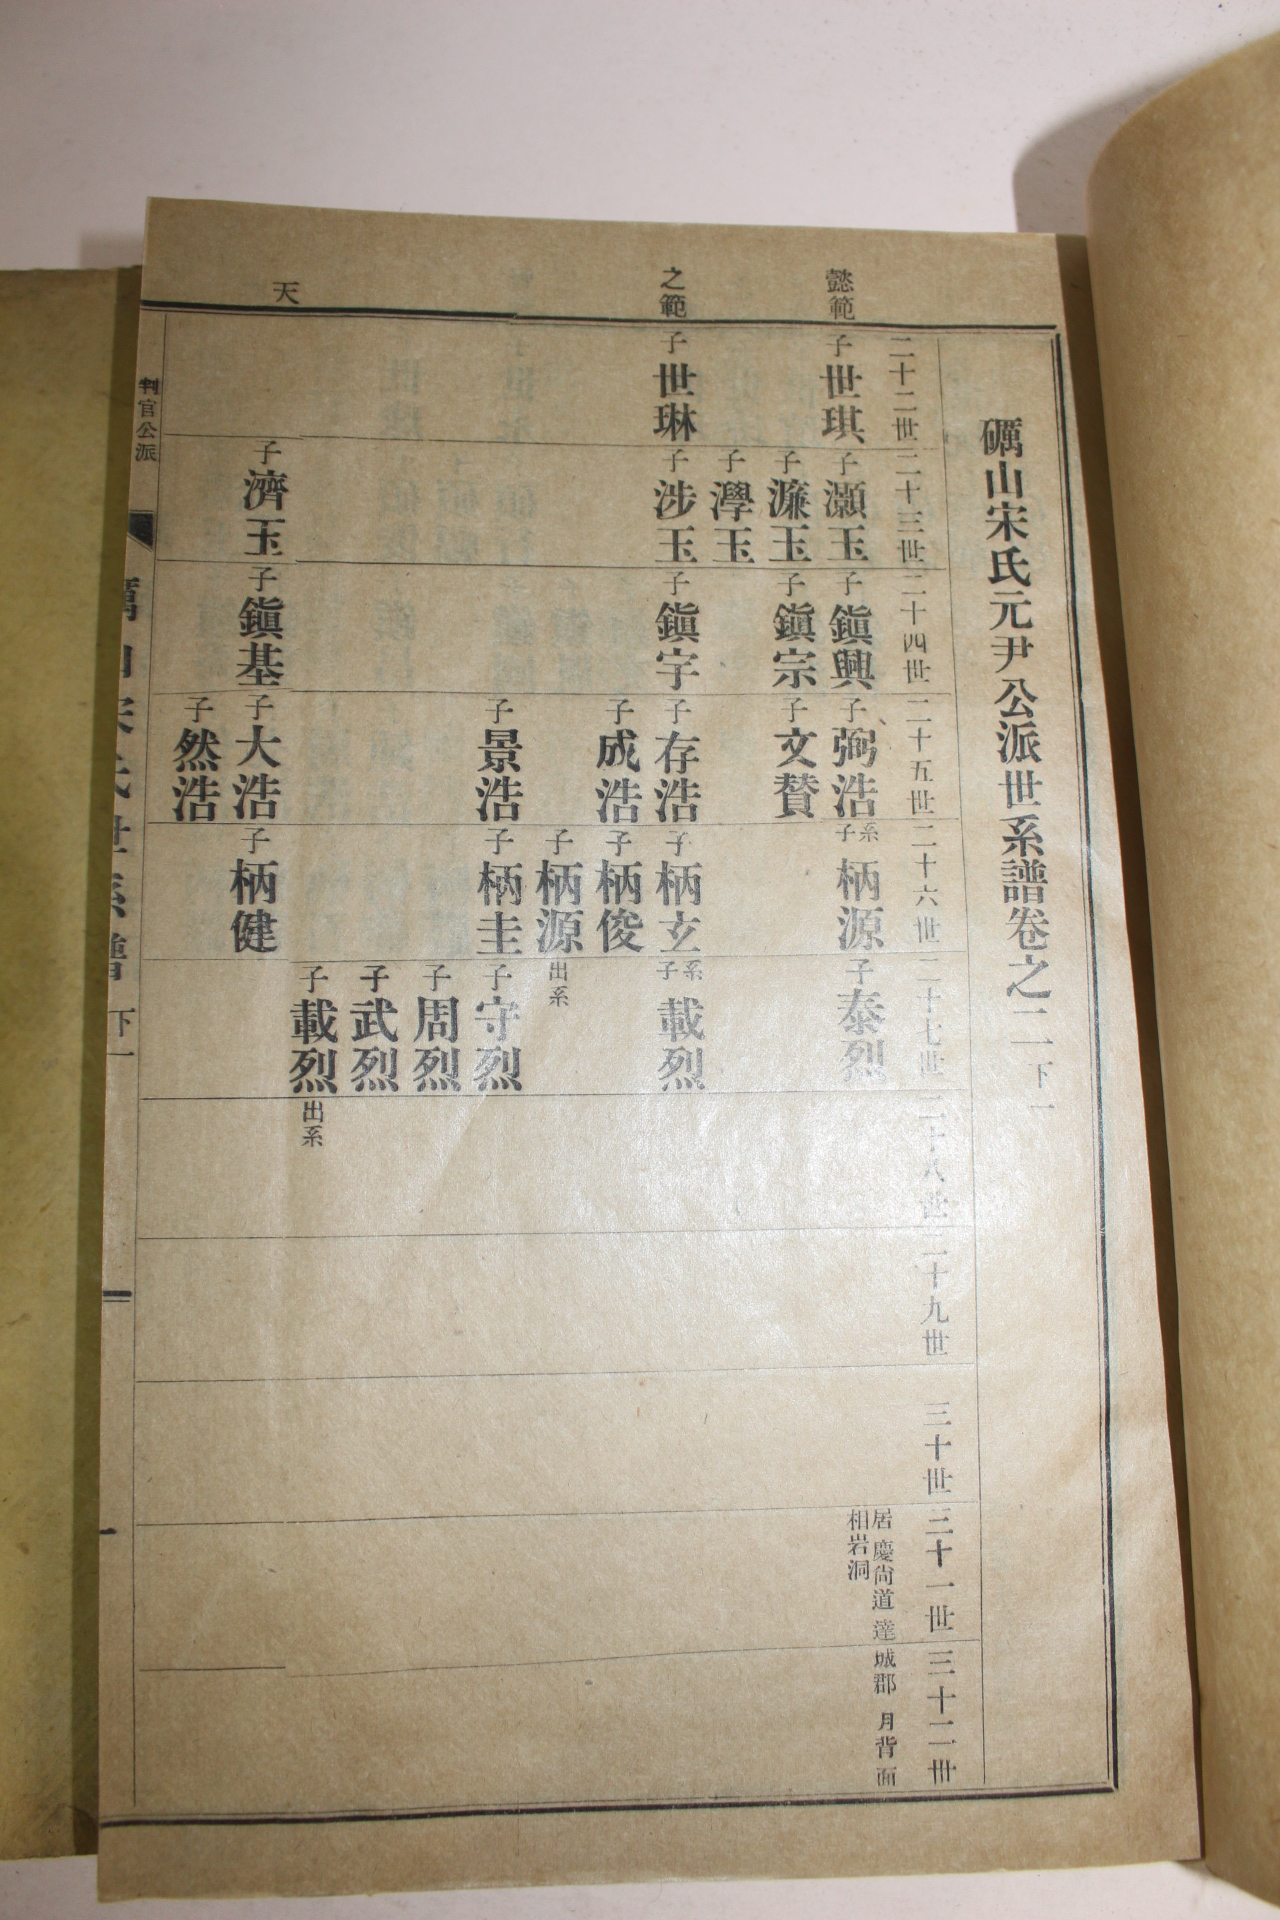 礪山宋氏元尹公派世系譜卷之二 下一
二十二世
二十三世
二十四世
二十五世
二十六世
二十七世
二十八世
二十九世
三十世
三十一世
三十二世
懿範
子 世琪
子 灝玉
子 鎭興
子 弼浩
系子 柄源
子 泰烈
居慶尙道達城郡月背面
相岩洞
子 濂玉
子 鎭宗
子 文贊
子 澩玉
之範
子 世琳
子 涉玉
子 鎭宇
子 存浩
子 柄玄
系子 載烈
子 成浩
子 柄俊
子 柄源 出系
子 景浩
子 柄圭
子 守烈
子 周烈
子 武烈
子 載烈 出系
天
子 濟玉
子 鎭基
子 大浩
子 柄健
子 然浩
判官公派
礪山宋氏世系譜 下一
一